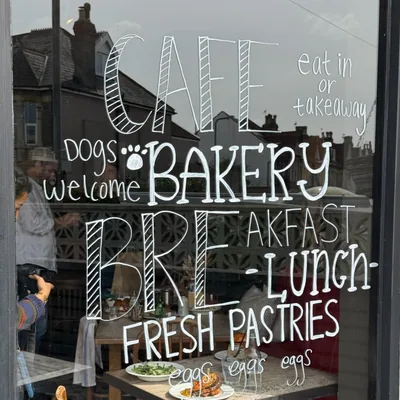 CAFE
eat in
or
takeaway
Dogs
welcome
BAKERY
BREAKFAST
-LUNCH-
FRESH PASTRIES
eggs eggs eggs